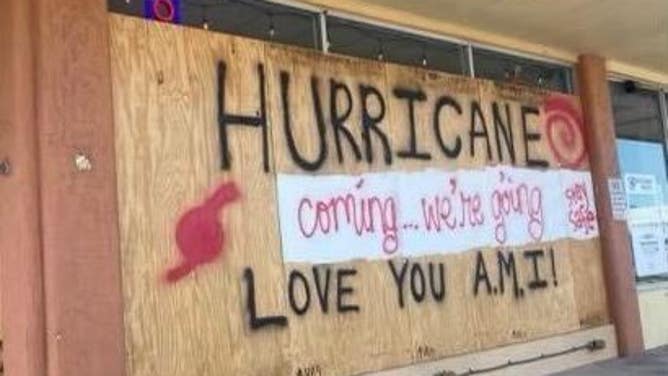 HURRICANE
coming... we're going
stay
safe
LOVE YOU A.M.I!